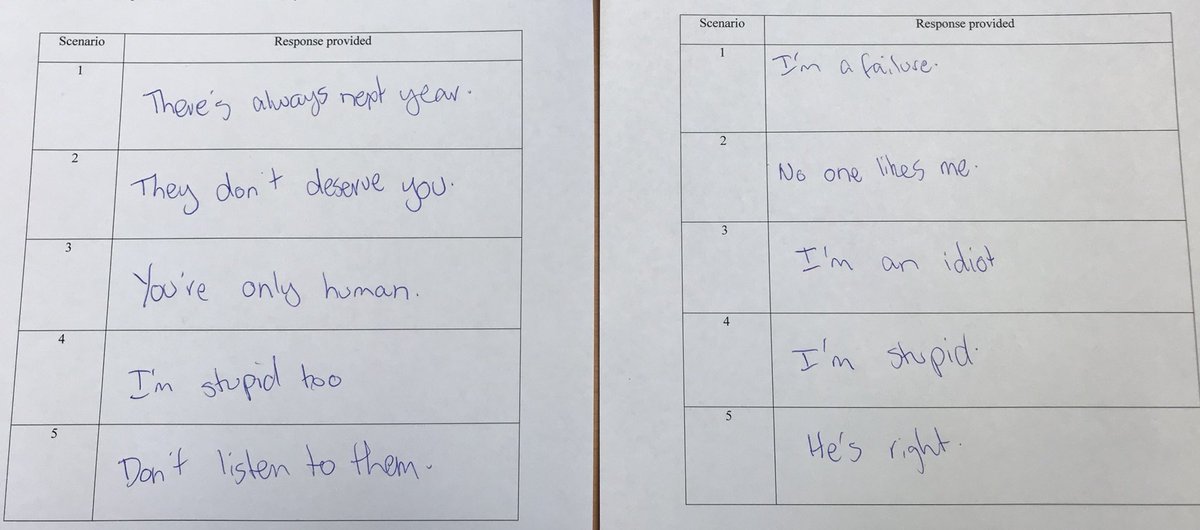 Scenario Response provided
1 There's always next year.
2 They don't deserve you.
3 You're only human.
4 I'm stupid too
5 Don't listen to them.
Scenario Response provided
1 I'm a failure.
2 No one likes me.
3 I'm an idiot
4 I'm stupid.
5 He's right.